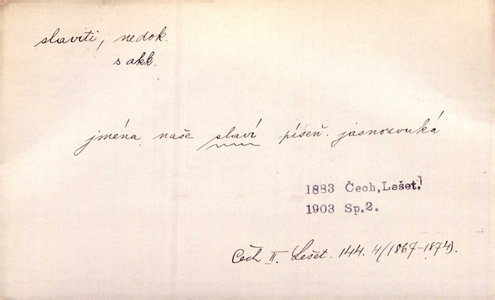 slaviti, nedok.
s akk.
jména naše slaví píseň jasnozvuká
1883 Čech, Lešet.
1903 Sp.2.
Čch II. Lešet. 144. 4/(1867-1874).